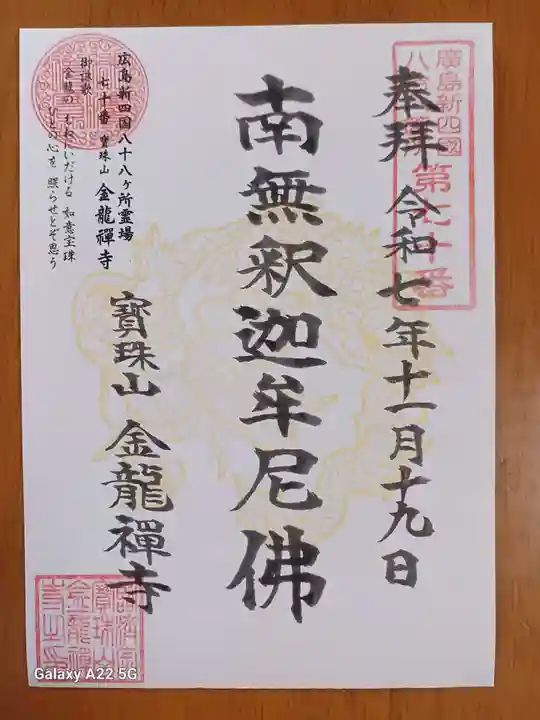 廣島新四國
八
第七十番
奉拝 令和七年十一月十九日
南無釈迦牟尼佛
広島新四国八十八ヶ所霊場
七十番 寶珠山 金龍禅寺
御詠歌
金龍の むねにいだける 如意宝珠
ひとの心を 照らせとぞ思う
寶珠山 金龍禪寺
寶珠山
金龍禪
寺之印
Galaxy A22 5G